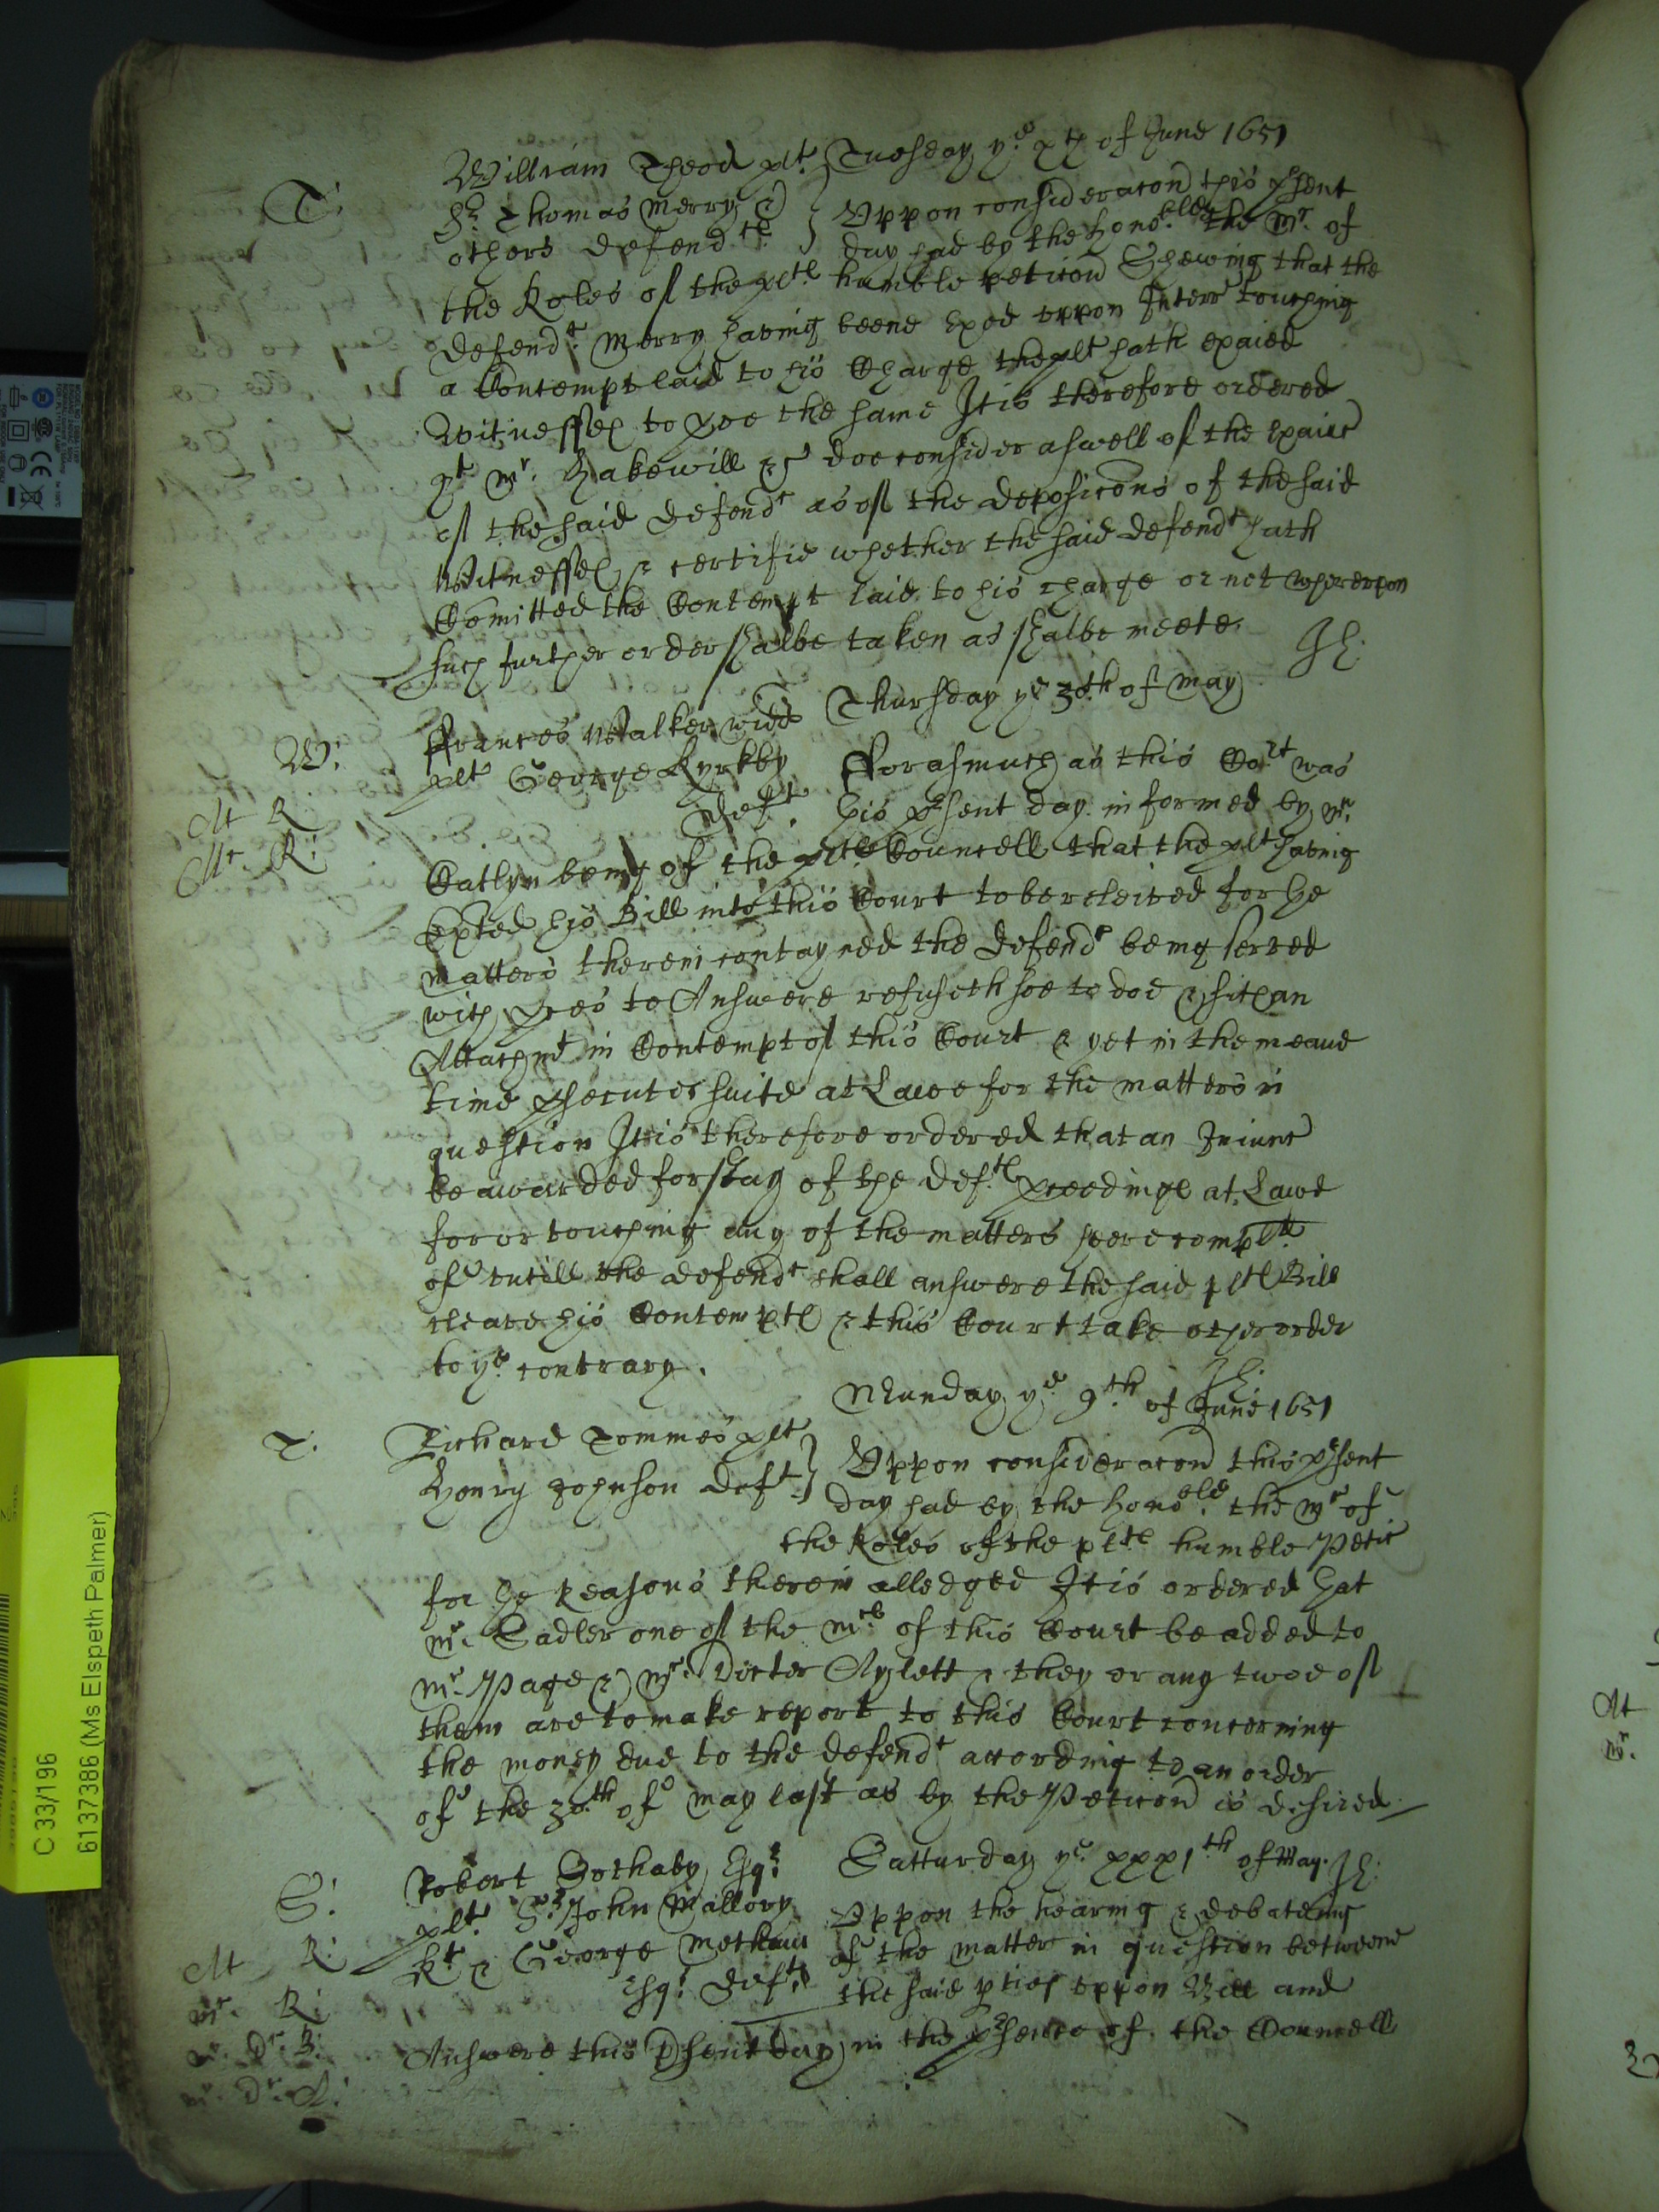 William Theed plt. Tuesday ye. xth of June 1651
T:
Sr. Thomas Merry &
others defendts.
Uppon consideracon this psent
day had by the honoble. the Mr. of
the Roles of the plts humble peticon Shewing that the
Defendt. Merry having beene Exed uppon Interr touching
a Contempt laid to his Charge the plt hath exaied
Witnesses to prove the same It is therefore ordered
yt Mr. Hakewill & doe consider aswell of the Exaicn
of the said Defendt as of the deposicons of the said
Witnesses & certifie whether the said defendt hath
Comitted the Contempt laid to his charge or not whereupon
such further order shalbe taken as shalbe meete. Jh:
Thursday ye 30th of May
W:
Frances Walker widd
plt George Kyrkby
Deft.
At R
Mr. R:
Forasmuch as this Cort was
this psent day informed by Mr.
Catlyn being of the plts Councell that the plt having
Exted his Bill into this Court to be releived for the
matters therein contayned the Defendt being served
with pces to Answere refuseth soe to doe & sitts an
Attachmt in Contempt of this Court & yet in the meane
time psecutes suite at Lawe for the matters in
question It is therefore ordered that an Iniuncc
be awarded for stay of the defts pceedings at Lawe
for or touching any of the matters here complt.
of untill the defendt shall answere the said plts Bill
cleare his Contempts & this Court take other order
to ye. contrary. Jh:
Munday ye 9.th of June 1651
T.
Richard Tommes plt
Henry Johnson Deft
Uppon consideracon this psent
day had by the honoble. the Mr of
the Roles of the plts humble Petic
for the Reasons therein alledged It is ordered that
Mr. Sadler one of the Mrs. of this Court be added to
Mr. Page & Mr. Docter Aylett & they or any twoe of
them are to make report to this Court concerning
the money due to the defendt according to an order
of the 30.th of May last as by the Peticon is desired.
Satturday ye. xxx1th of May. Jh:
S:
Robert Sothaby Esqr.
plt. Sr. John Mallory
Kt & George Metham
Esqr. Defts
At R:
Mr. R:
Mr. Dr. B:
Mr. Dr. A:
Uppon the hearing & debateing
of the matter in question betweene
the said pties uppon Bill and
Answere this psent day in the psence of the Councell
C 33/196
6137386 (Ms Elspeth Palmer)
At
Mr.